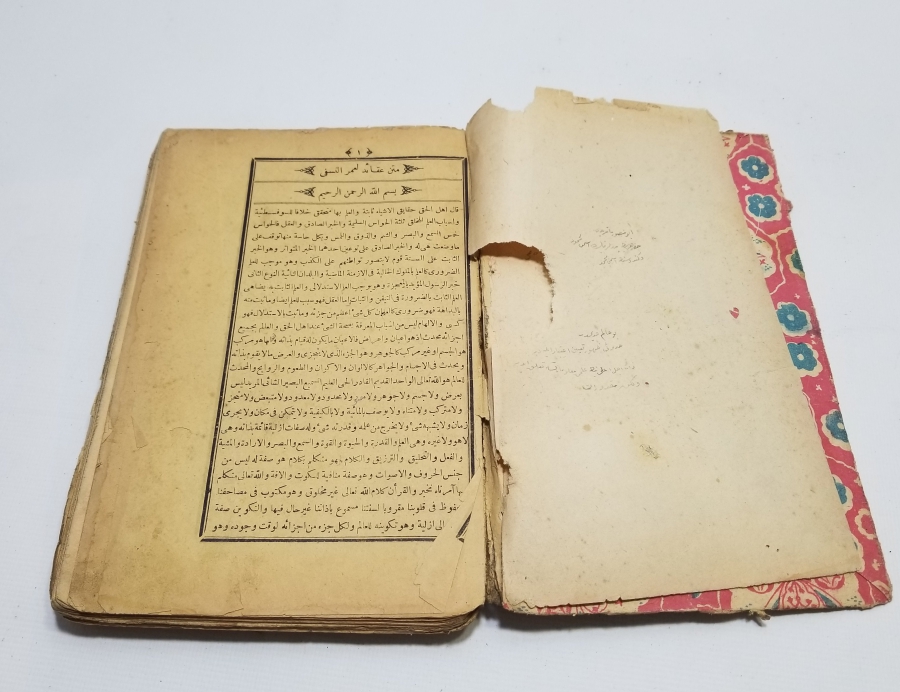 ١
متن عقائد لعمر النسفى
بسم الله الرحمن الرحيم
قال اهل الحق حقايق الاشياء ثابتة والعلم بها متحقق خلافا للسوفسطائية
واسباب العلم للخلق ثلاثة الحواس السليمة والخبر الصادق والعقل فالحواس
خمس السمع والبصر والشم والذوق واللمس وبكل حاسة منها توقف على
ما وضعت هى له والخبر الصادق على نوعين احدهما الخبر المتواتر وهو الخبر
الثابت على السنة قوم لا يتصور تواطئهم على الكذب وهو موجب للعلم
الضرورى كالعلم بالملوك الخالية فى الازمنة الماضية والبلدان النائية النوع الثانى
خبر الرسول المؤيد بالمعجزة وهو يوجب العلم الاستدلالى والعلم الثابت به يضاهى
العلم الثابت بالضرورة فى التيقن والثبات واما العقل فهو سبب للعلم ايضا وما ثبت منه
بالبداهة فهو ضرورى كالعلم بان كل شئ اعظم من جزئه وما ثبت بالاستدلال فهو
كسبى والالهام ليس من اسباب المعرفة بصحة الشئ عند اهل الحق والعالم بجميع
اجزائه محدث اذ هو اعيان واعراض فالاعيان ما يكون له قيام بذاته وهو اما مركب
هو الجسم او غير مركب كالجوهر وهو الجزء الذى لا يتجزى والعرض ما لا يقوم بذاته
ويحدث فى الاجسام والجواهر كالالوان والاكوان والطعوم والروايح والمحدث
للعالم هو الله تعالى الواحد القديم القادر الحى العليم السميع البصير الشائى المريد ليس
بعرض ولا جسم ولا جوهر ولا مصور ولا محدود ولا معدود ولا متبعض ولا متجز
ولا متركب ولا متناه ولا يوصف بالمائية ولا بالكيفية ولا يتمكن فى مكان ولا يجرى
زمان ولا يشبهه شئ ولا يخرج من علمه وقدرته شئ وله صفات ازلية قائمة بذاته وهى
لا هو ولا غيره وهى العلم والقدرة والحيوة والقوة والسمع والبصر والارادة والمشية
والفعل والتخليق والترزيق والكلام وهو متكلم بكلام هو صفة له ليس من
جنس الحروف والاصوات وهو صفة منافية للسكوت والآفة والله تعالى متكلم
بها آمر ناه مخبر والقرآن كلام الله تعالى غير مخلوق وهو مكتوب فى مصاحفنا
محفوظ فى قلوبنا مقرو بالسنتنا مسموع باذاننا غير حال فيها والتكوين صفة
الى ازلية وهو تكوينه للعالم ولكل جزء من اجزائه لوقت وجوده وهو